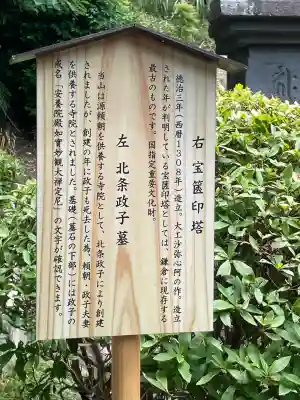 右 宝篋印塔
徳治三年（西暦１３０８年）造立。大工沙弥心阿の作。造立
された年が判明している宝篋印塔としては、鎌倉に現存する
最古のものです。国指定重要文化財。
左 北条政子墓
当山は源頼朝を供養する寺院として、北条政子により創建
されましたが、創建の年に政子も死去した為、頼朝・政子夫妻
を供養する寺院とされました。基礎（墓石の下部）には政子の
戒名「安養院殿如實妙観大禅定尼」の文字が確認できます。